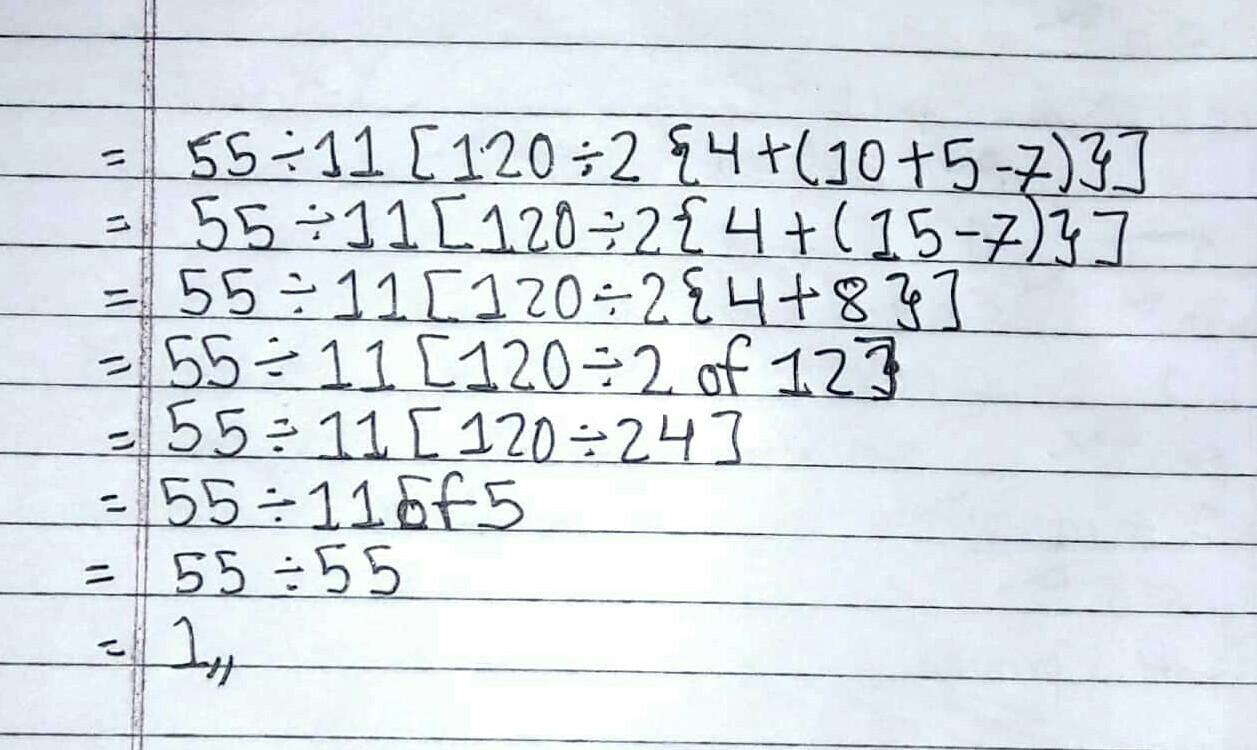 = 55÷11[120÷2{4+(10+5-7)}]
= 55÷11[120÷2{4+(15-7)}]
= 55÷11[120÷2{4+8}]
= 55÷11[120÷2 of 12]
= 55÷11[120÷24]
= 55÷11 of 5
= 55÷55
= 1,,